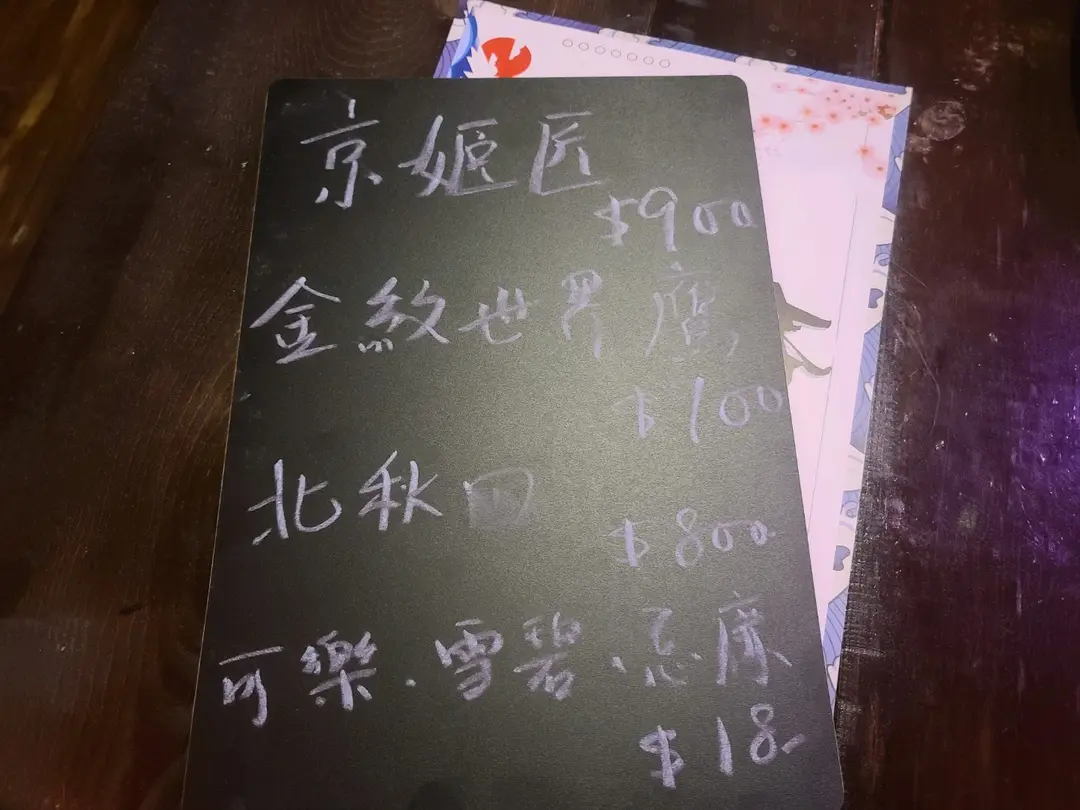 京姬匠
$900
金紋世界鷹
$100
北秋田
$800
可樂.雪碧.忌廉
$18.